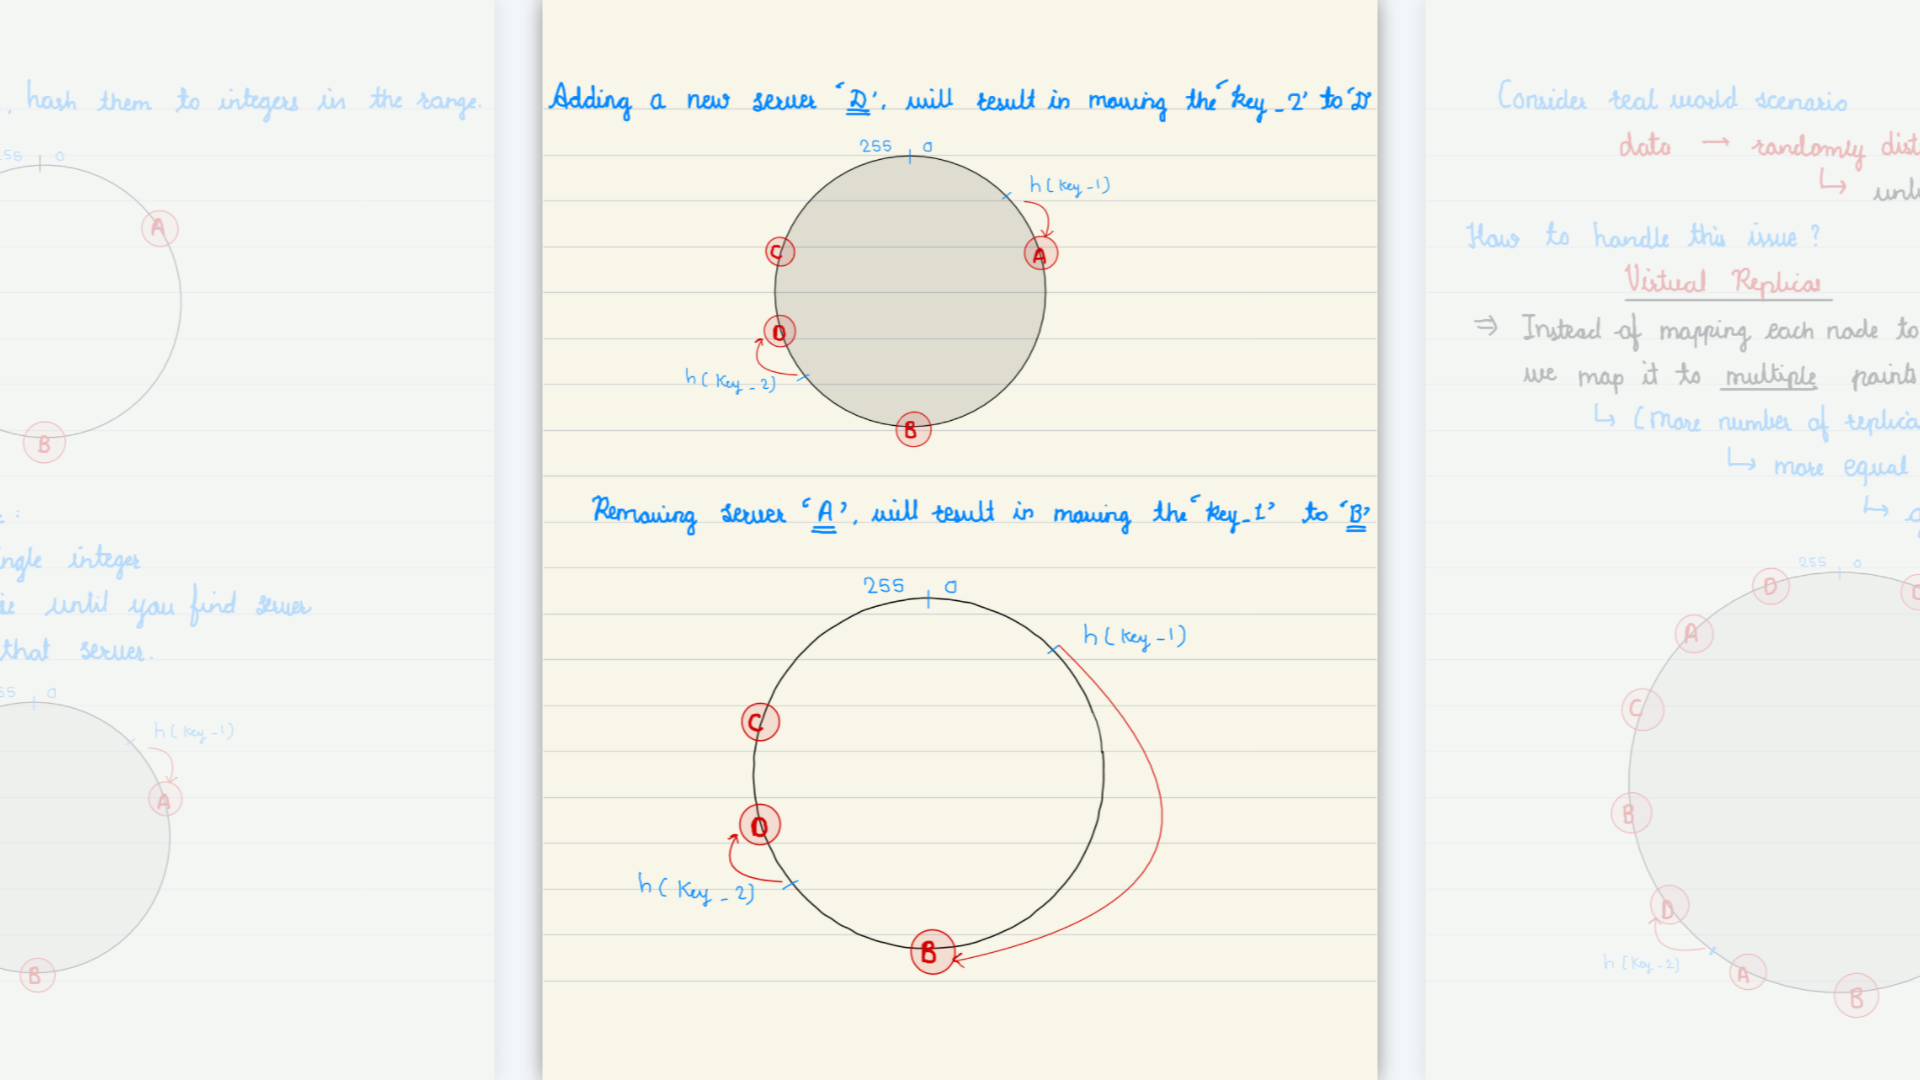 , hash them to integers in the range.
55 0
A
B
:
ngle integer
until you find server
that server.
55 0
h(key-1)
A
B
Adding a new server 'D', will result in moving the 'key_2' to 'D'
255 0
h(key-1)
C
A
D
h(key-2)
B
Removing server 'A', will result in moving the 'key_1' to 'B'
255 0
h(key-1)
C
D
h(key-2)
B
Consider real world scenario
data → randomly dist
↳ unb
How to handle this issue?
Virtual Replicas
⇒ Instead of mapping each node to
we map it to multiple points
↳ (More number of replica
↳ more equal
↳
255 0
D
A
C
B
D
h(key-2)
A
B